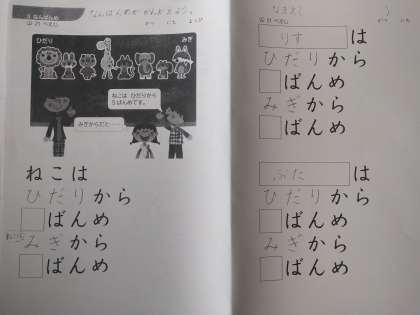 5 なんばんめ
なんばんめか かんがえよう。
ひだり
みぎ
ねこは ひだりから
5ばんめです。
みぎからだと……
ねこは
ひだりから
ばんめ
ねこは
みぎから
ばんめ
なまえ(
)
りす は
ひだりから
ばんめ
みぎから
ばんめ
ぶた は
ひだりから
ばんめ
みぎから
ばんめ